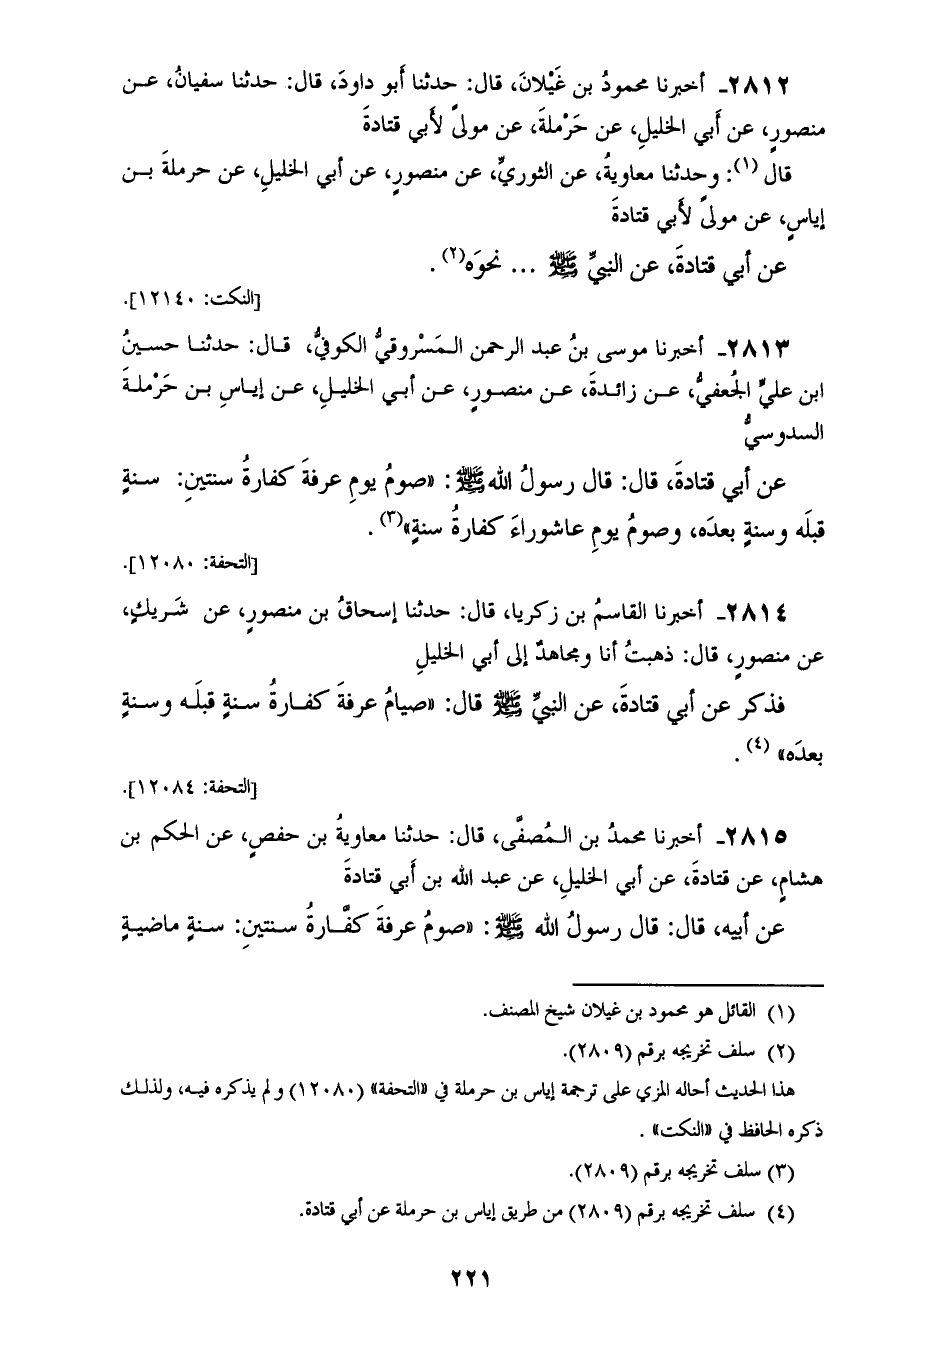 ٢٨١٢ـ أخبرنا محمودُ بن غَيْلانَ، قال: حدثنا أَبو داودَ، قال: حدثنا سفيانُ، عـن
منصورٍ، عن أَبي الخليلِ، عن حَرْملةَ، عن مولىً لأَبي قتادةَ
قال (١): وحدثنا معاويةُ، عن الثوريِّ، عن منصورٍ، عن أبي الخليلِ، عن حرملةَ بـن
إياسٍ، عن مولىً لأَبي قتادةَ
عن أبي قتادةَ، عن النبيِّ ﷺ ... نحوَه(٢) .
[النكت: ١٢١٤٠].
٢٨١٣ـ أخبرنا موسى بنُ عبد الرحمن الـمَسْروقيُّ الكوفيُّ، قـال: حدثنـا حسينُ
ابن عليٍّ الجُعفيُّ، عـن زائـدةَ، عـن منصـورٍ، عـن أبـي الخليـلِ، عـن إيـاسِ بـن حَرْملـةَ
السدوسيُّ
عن أبي قتادةَ، قال: قال رسولُ الله ﷺ: «صومُ يومِ عرفةَ كفارةُ سنتينِ: سـنةٍ
قبلَه وسنةٍ بعدَه، وصومُ يومِ عاشوراءَ كفارةُ سنةٍ»(٣) .
[التحفة: ١٢٠٨٠].
٢٨١٤ـ أخبرنا القاسمُ بن زكريا، قال: حدثنا إسحاقُ بن منصورٍ، عن شَـريكٍ،
عن منصورٍ، قال: ذهبتُ أنا ومجاهدٌ إلى أبي الخليلِ
فذكر عن أبي قتادةَ، عن النبيِّ ﷺ قال: «صيامُ عرفةَ كفـارةُ سـنةٍ قبلَـه وسـنةٍ
بعدَه» (٤) .
[التحفة: ١٢٠٨٤].
٢٨١٥ـ أخبرنا محمدُ بن الـمُصفَّى، قال: حدثنا معاويةُ بن حفصٍ، عن الحكم بن
هشامٍ، عن قتادةَ، عن أبي الخليلِ، عن عبد الله بن أَبي قتادةَ
عن أبيه، قال: قال رسولُ الله ﷺ: «صومُ عرفةَ كفَّـارةُ سـنتينِ: سـنةٍ ماضيـةٍ
(١) القائل هو محمود بن غيلان شيخ المصنف.
(٢) سلف تخريجه برقم (٢٨٠٩).
هذا الحديث أحاله المزي على ترجمة إياس بن حرملة في «التحفة» (١٢٠٨٠) ولم يذكره فيـه، ولذلـك
ذكره الحافظ في «النكت» .
(٣) سلف تخريجه برقم (٢٨٠٩).
(٤) سلف تخريجه برقم (٢٨٠٩) من طريق إياس بن حرملة عن أبي قتادة.
٢٢١